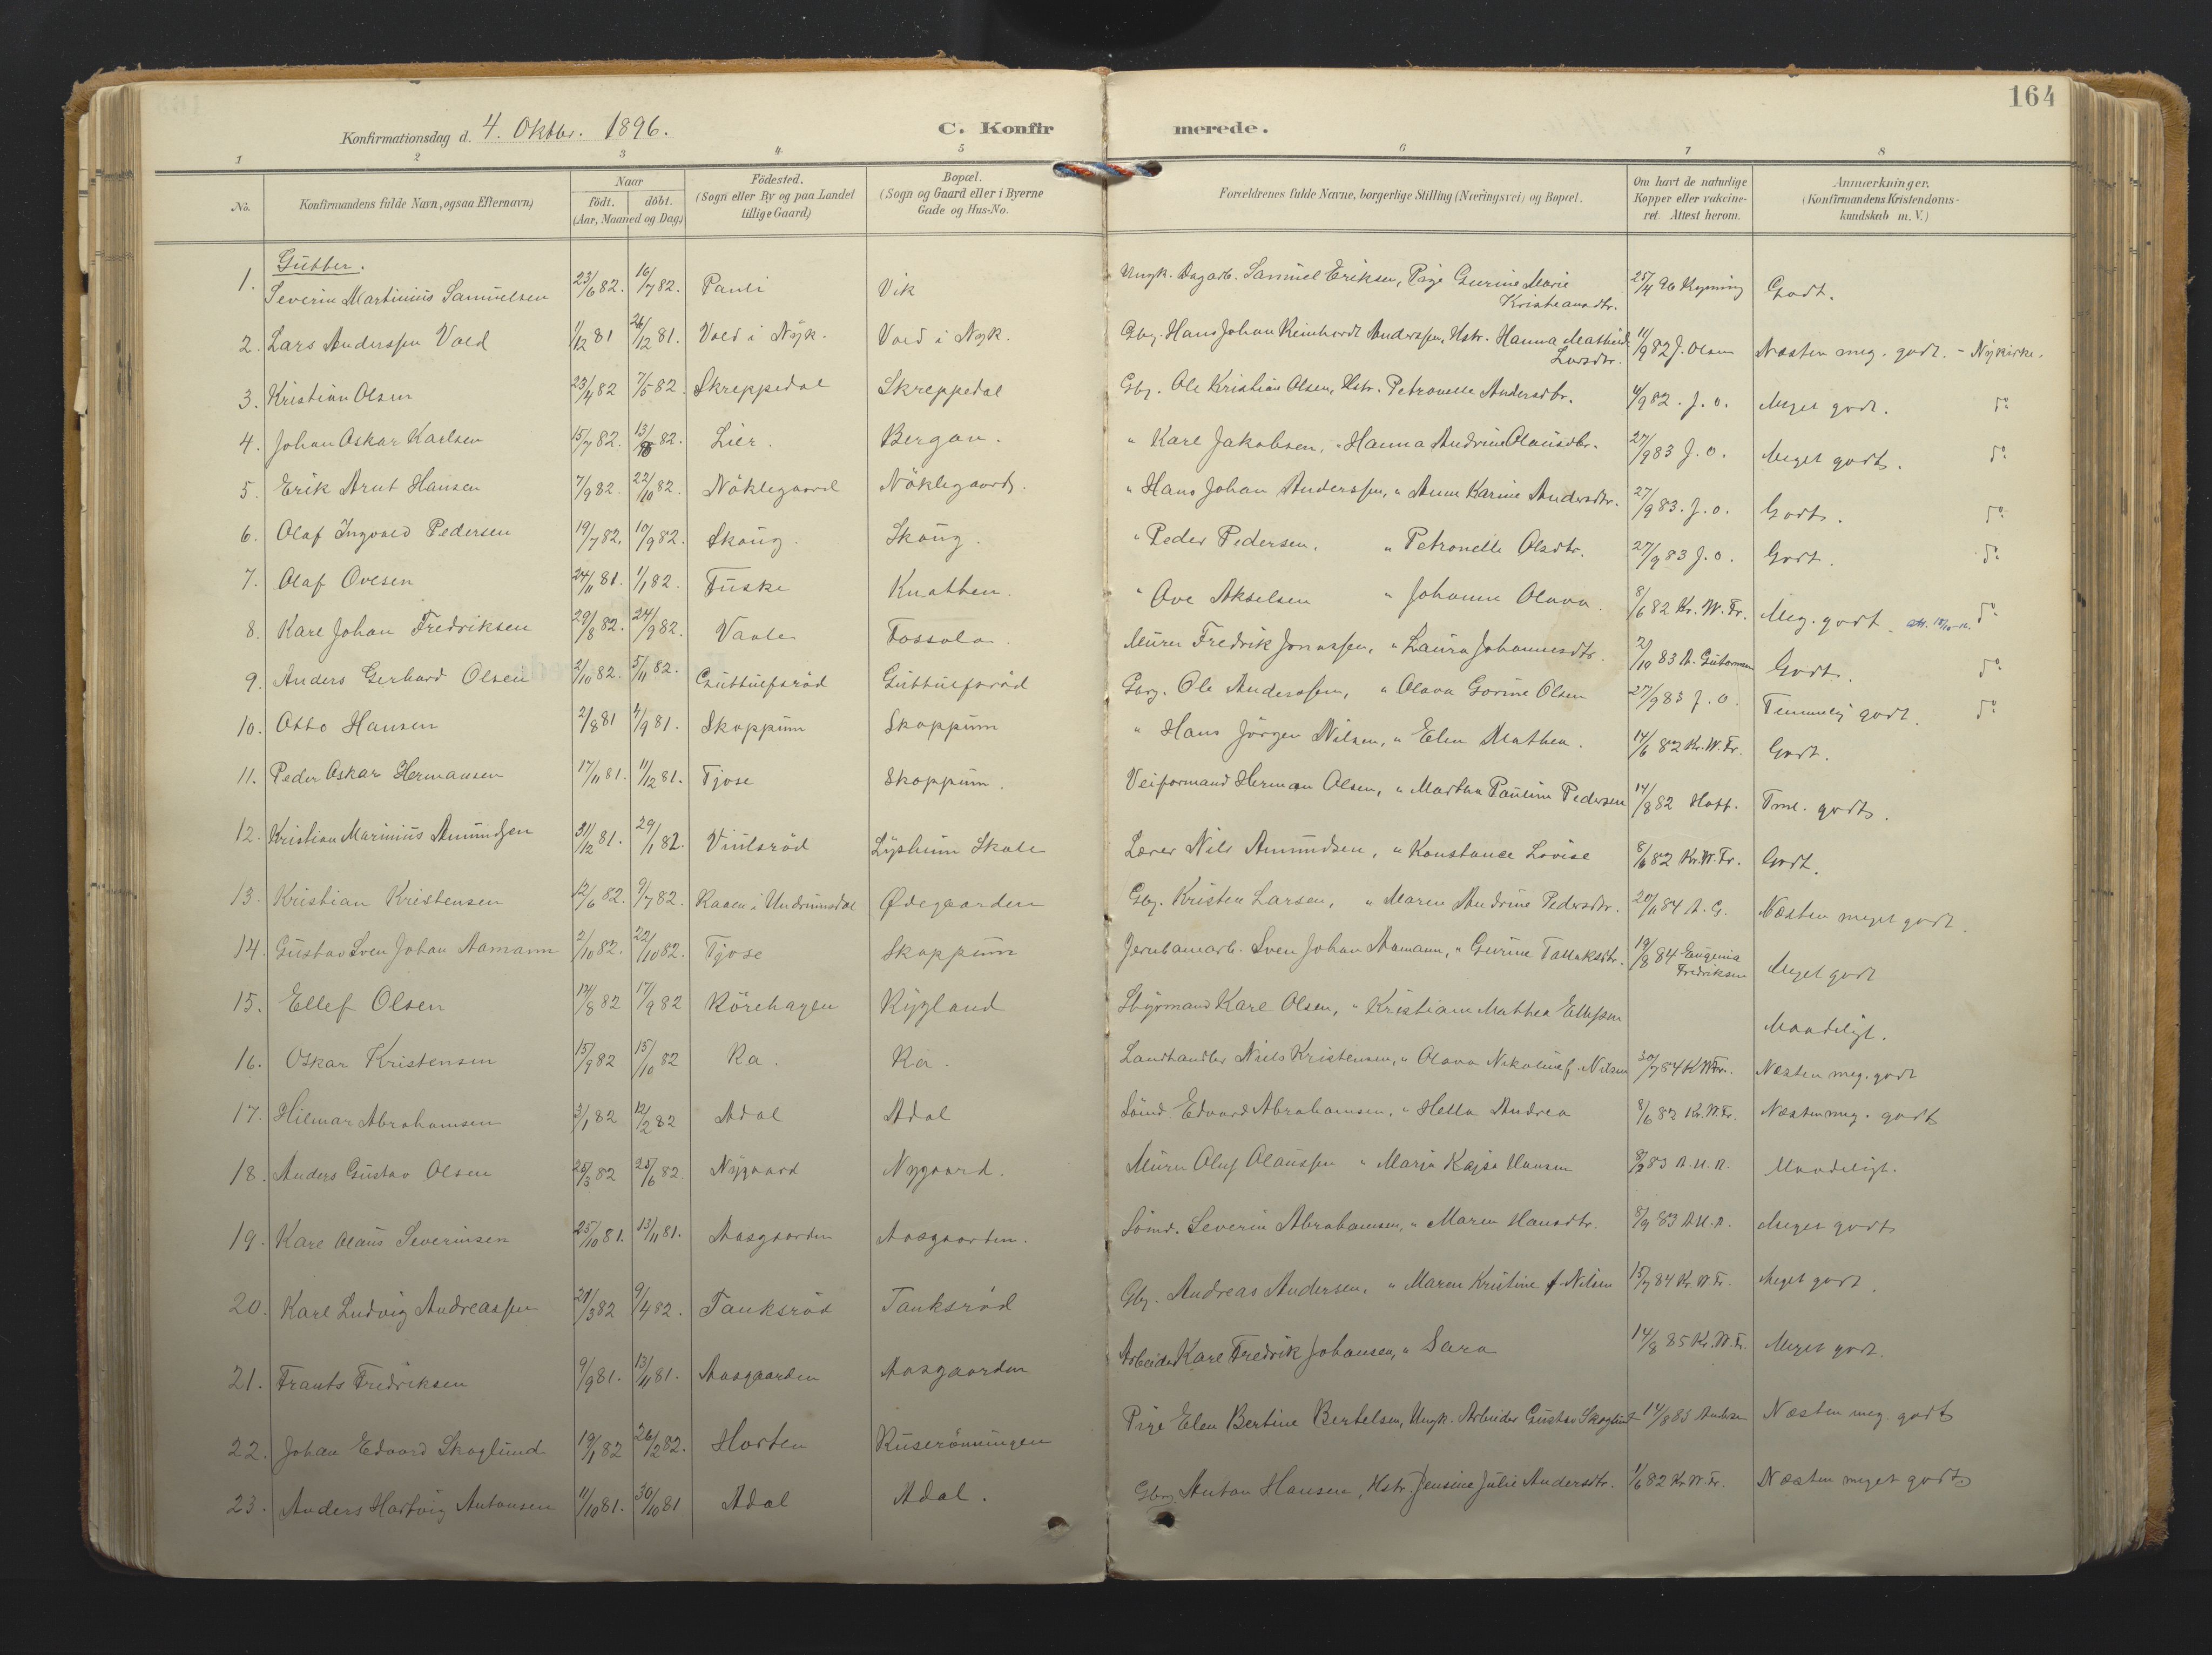 164
Konfirmationsdag d. 4. Oktbr. 1896.
C. Konfirmerede.
1 2 3 4 5 6 7 8
No. Konfirmandens fulde Navn, ogsaa Efternavn) Naar födt. döbt. (Aar, Maaned og Dag) Födested. (Sogn eller By og paa Landet tillige Gaard) Bopæl. (Sogn og Gaard eller i Byerne Gade og Hus-No. Forældrenes fulde Navne, borgerlige Stilling (Næringsvei) og Bopæl. Om havt de naturlige Kopper eller vakcineret. Attest herom. Anmærkninger. (Konfirmandens Kristendomskundskab m. V.)
Gutter.
1. Severin Martinius Samuelsen 23/6 82. 16/7 82. Pauli Vik Ungk. Dagarb. Samuel Eriksen, Pige Gurine Marie Kristeansdtr. 25/4 96 Godt.
2. Lars Anderssen Vold 1/12 81 26/12 81. Vold i Nyk. Vold i Nyk. Gbg. Hans Johan Reinhardt Anderssen, Hstr. Hanna Mathilde Larsdtr. 11/9 82 J. Olsen Næsten meg. godt. - Nykirke.
3. Kristian Olsen 23/4 82 7/5 82. Skreppedal Skreppedal Gbg. Ole Kristian Olsen, Hstr. Petronelle Andersdtr. 11/9 82. J. O. Meget godt. do
4. Johan Oskar Karlsen 15/7 82. 13/ 82. Lier. Bergan. " Karl Jakobsen, " Hanna Andrine Olausdtr. 27/9 83 J. O. Meget godt. do
5. Erik Arnt Hansen 7/9 82. 22/10 82. Nöklegaard Nöklegaard. " Hans Johan Anderssen, " Anne Karine Andersdtr. 27/9 83. J. O. Godt. do
6. Olaf Ingvald Pedersen 19/7 82. 17/9 82. Skoug. Skoug. " Peder Pedersen, " Petronelle Olsdtr. 27/9 83 J. O. Godt. do
7. Olaf Ovesen 24/11 81. 1/1 82. Fuske Knatten. " Ove Akselsen " Johanne Olava. 8/6 82 Kr. W. Fr. Meg. godt. do
8. Karl Johan Fredriksen 29/8 82. 24/9 82. Vaale Fossola. Murer Fredrik Jonassen, " Laura Johannesdtr. 2/10 83 A. Gutormsen Godt. do
9. Anders Gerhard Olsen 2/10 82. 5/11 82. Guttulfsröd Guttulfsröd Gbrg. Ole Anderssen, " Olava Gorine Olsen 27/9 83 J. O. Temmelig godt. do
10. Otto Hansen 2/8 81 4/9 81. Skoppum Skoppum " Hans Jörgen Nilsen, " Elen Mathea. 14/6 82 Kr. W. Fr. Godt.
11. Peder Oskar Hermansen 17/11 81. 11/12 81. Tjose Skoppum. Veiformand Herman Olsen, " Martha Pauline Pedersen 14/8 82 Hoff. Tml. godt.
12. Kristian Marinius Amundsen 31/12 81. 29/1 82. Viulsröd Lyshuim Skole Lærer Nils Amundsen, " Konstance Lovise 8/6 82 Kr. W. Fr. Godt.
13. Kristian Kristensen 12/6 82. 9/7 82. Raaen i Undrumsdal Ødegaarden Gbg. Kristen Larsen, " Maren Andrine Pedersdtr. 20/11 84 A. G. Næsten meget godt.
14. Gustav Sven Johan Aamann 2/10 82. 22/10 82. Tjose Skoppum Jernbanearb. Sven Johan Aamann, " Gurine Tollaksdtr. 19/8 84 Eugenia Fredriksen Meget godt
15. Ellef Olsen 12/8 82 17/9 82 Rörehagen Rygland Styrmand Karl Olsen, " Kristiane Mathea Ellefsen Maadeligt.
16. Oskar Kristensen 15/9 82 15/10 82 Ra. Ra. Landhandler Niels Kristensen, " Olava Nikoline f. Nilsen 30/7 84 K W Fr. Næsten meg. godt
17. Hilmar Abrahamsen 3/1 82 12/2 82 Adal Adal Sömd Edvard Abrahamsen, " Hella Andrea 8/6 82 Kr. W. Fr. Næsten meg. godt
18. Anders Gustav Olsen 25/3 82 25/6 82. Nygaard Nygaard. Murer Oluf Olaussen " Marja Kajsa Hansen 8/9 83 A. H. A. Maadeligt.
19. Karl Olaus Severinsen 25/10 81. 13/11 81. Aasgaarden Aasgaarden. Sömd. Severin Abrahamsen, " Maren Hansdtr. 8/9 83 A. H. A. Meget godt
20. Karl Ludvig Andreassen 21/3 82 9/4 82. Tanksröd Tanksröd Gbg. Andreas Andersen, " Maren Kristine f. Nilsen 15/7 84 Kr. W. Fr. Meget godt.
21. Frants Fredriksen 9/9 81. 13/11 81. Aasgaarden Aasgaarden Arbeider Karl Fredrik Johansen, " Sara 14/8 85 Kr. W. Fr. Meget godt.
22. Johan Edvard Skoglund 19/1 82 26/2 82. Horten Ruserönningen Pige Elen Bertine Bertelsen, Ungk. Arbeider Gustav Skoglund 14/8 85 Næsten meg. godt
23. Anders Hartvig Antonsen 11/10 81. 30/10 81 Adal Adal. Gbrg. Anton Hansen, Hstr. Jensine Julie Andersdtr. 1/6 82 Kr. W. Fr. Næsten meget godt